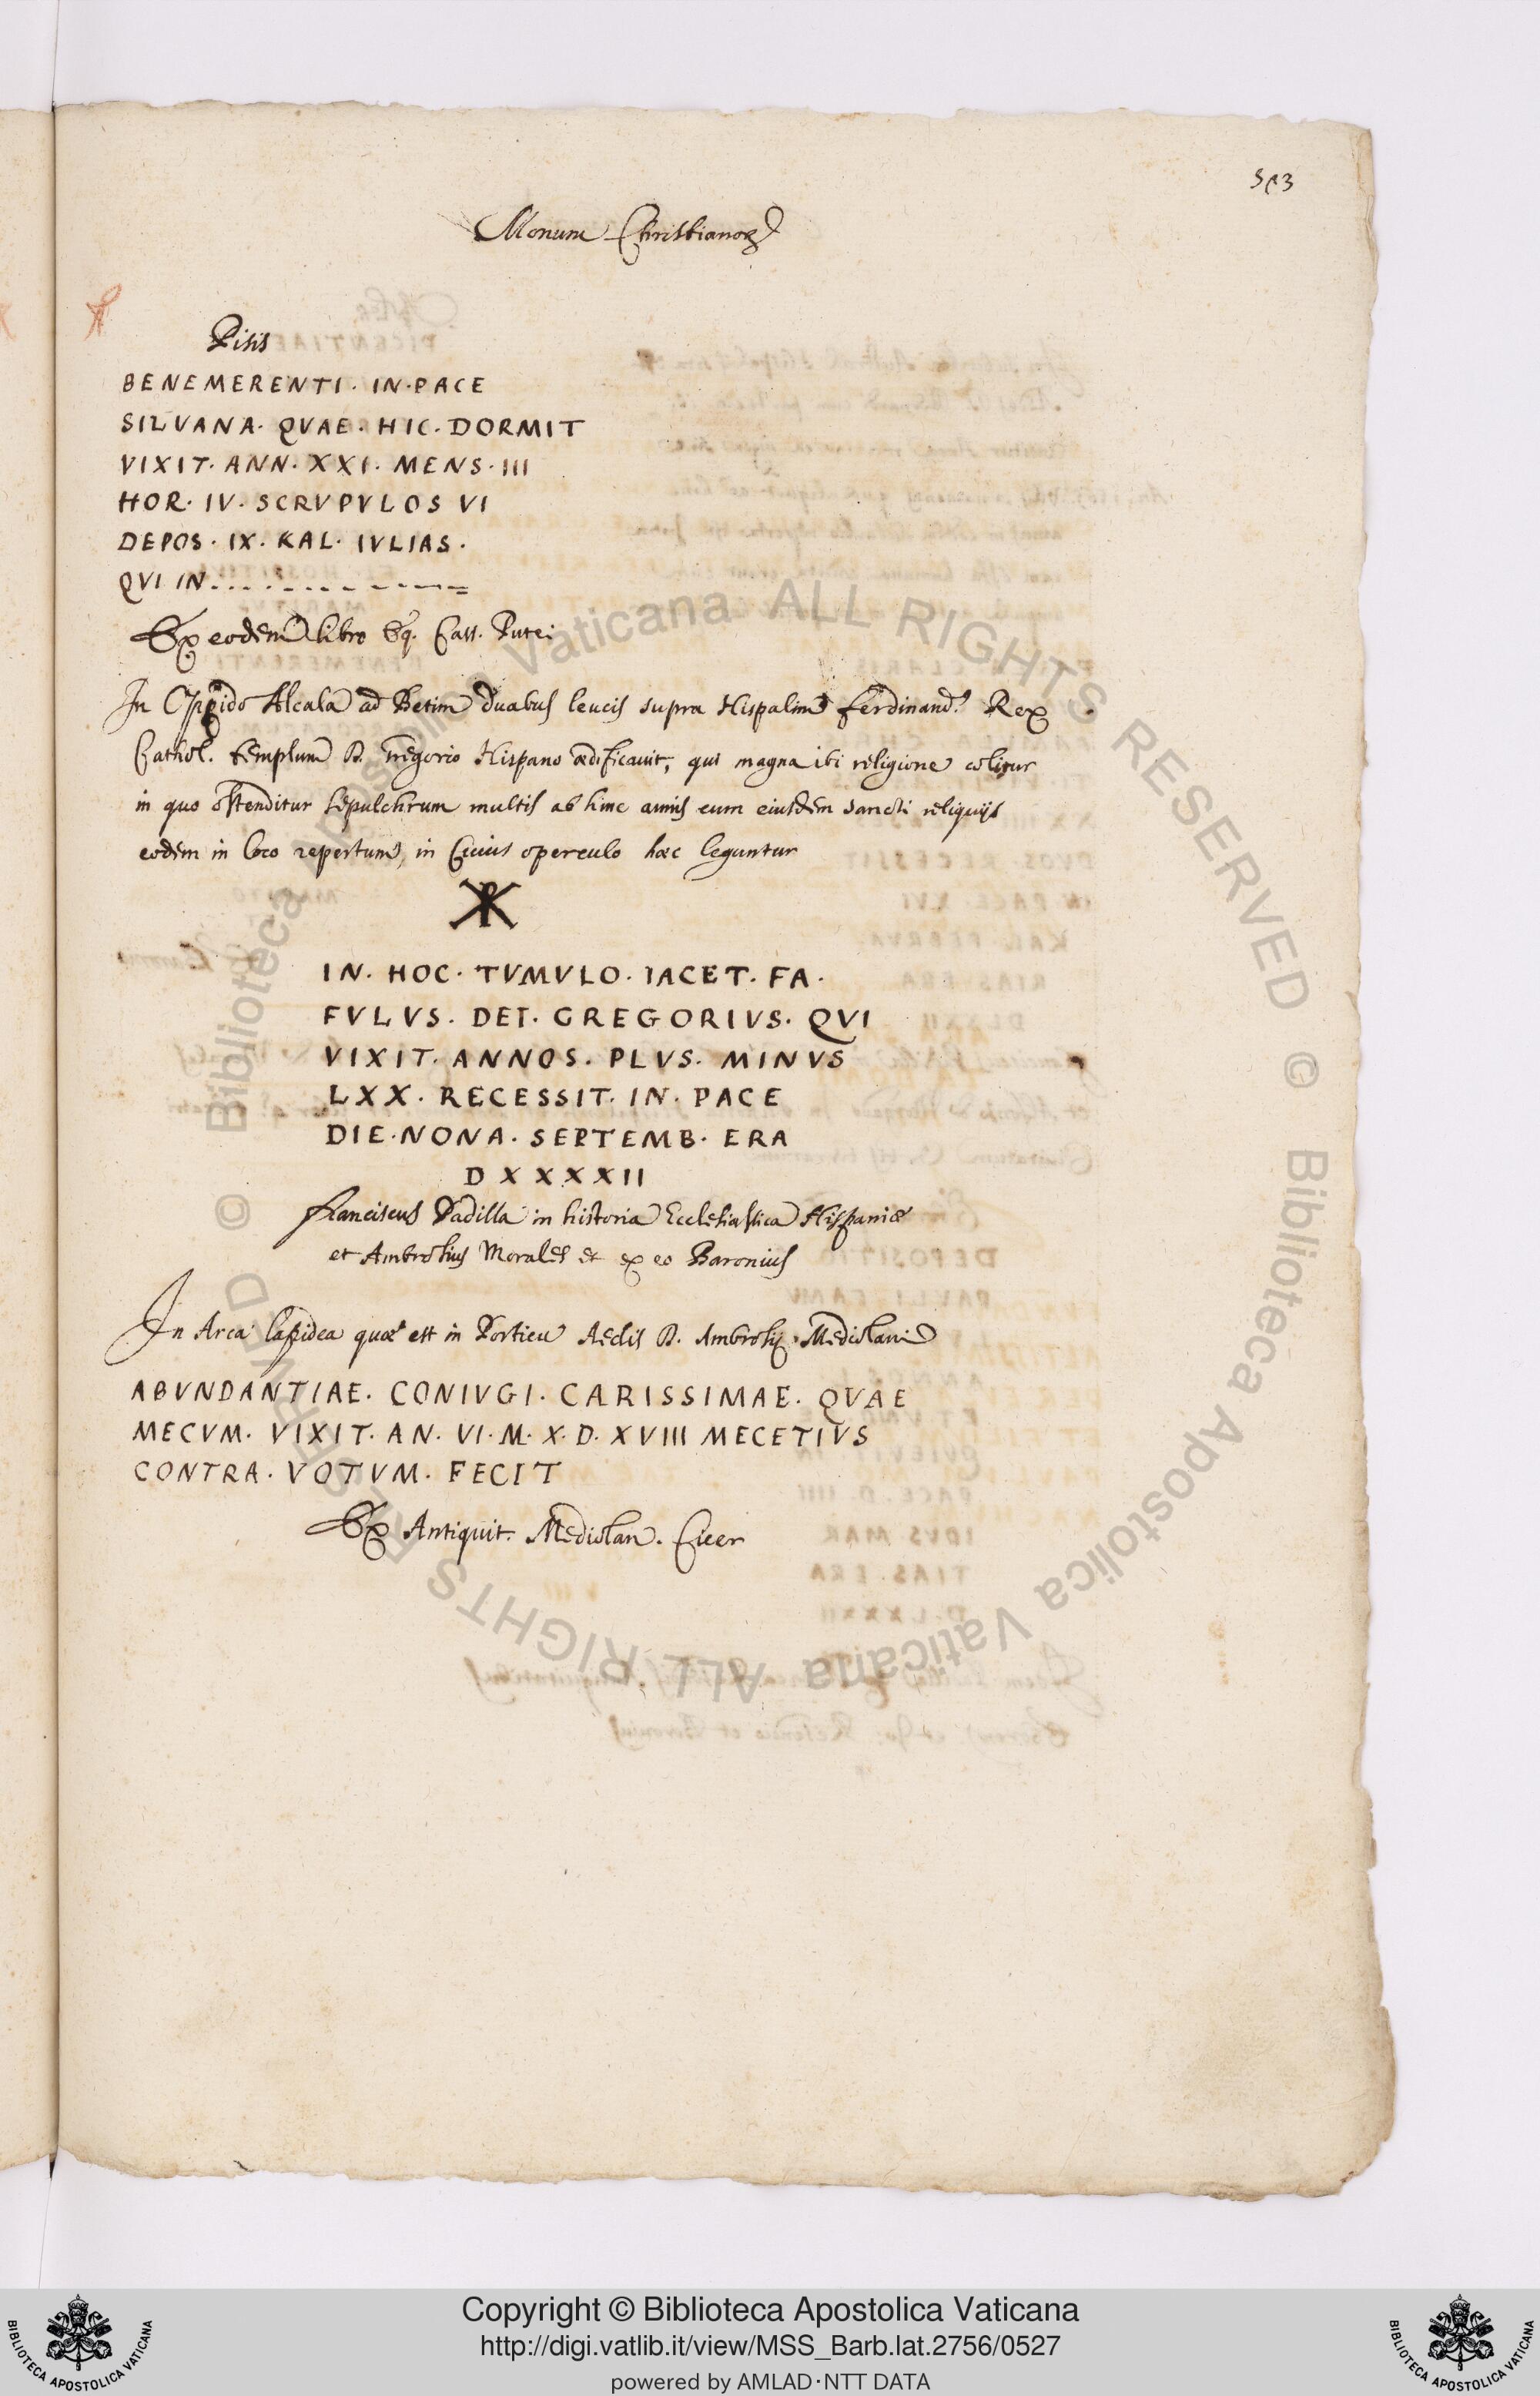 513
Monum Christianoꝝ
Pisis
BENEMERENTI. IN. PACE
SILVANA. QVAE. HIC. DORMIT
VIXIT. ANN. XXI. MENS. III
HOR. IV. SCRVPVLOS VI
DEPOS. IX. KAL. IVLIAS.
QVI IN............
Ex eodem libro Eq. Cass. Putei
In Oppido Alcala ad Betim duabus leucis supra Hispalim Ferdinand.s Rex
Cathol. templum B. Gregorio Hispano ædificauit, qui magna ibi religione colitur
in quo ostenditur sepulchrum multis ab hinc annis cum eiusdem sancti reliquijs
eodem in loco repertum, in cuius operculo hæc leguntur
☧
IN. HOC. TVMVLO. IACET. FA.
FVLVS. DEI. GREGORIVS. QVI
VIXIT. ANNOS. PLVS. MINVS
LXX. RECESSIT. IN. PACE
DIE. NONA. SEPTEMB. ERA
DXXXXII
Franciscus Padilla in historia Ecclesiastica Hispaniæ
et Ambrosius Morales et ex eo Baronius
In Arca lapidea quæ est in Porticu Aedis D. Ambrosij Mediolani
ABVNDANTIAE. CONIVGI. CARISSIMAE. QVAE
MECVM. VIXIT. AN. VI. M. X. D. XVIII MECETIVS
CONTRA. VOTVM. FECIT
Ex Antiquit. Mediolan. Cicer
© Biblioteca Apostolica Vaticana ALL RIGHTS RESERVED © Biblioteca Apostolica Vaticana ALL RIGHTS RESERVED
Copyright © Biblioteca Apostolica Vaticana
http://digi.vatlib.it/view/MSS_Barb.lat.2756/0527
powered by AMLAD·NTT DATA
BIBLIOTECA APOSTOLICA VATICANA
BIBLIOTECA APOSTOLICA VATICANA